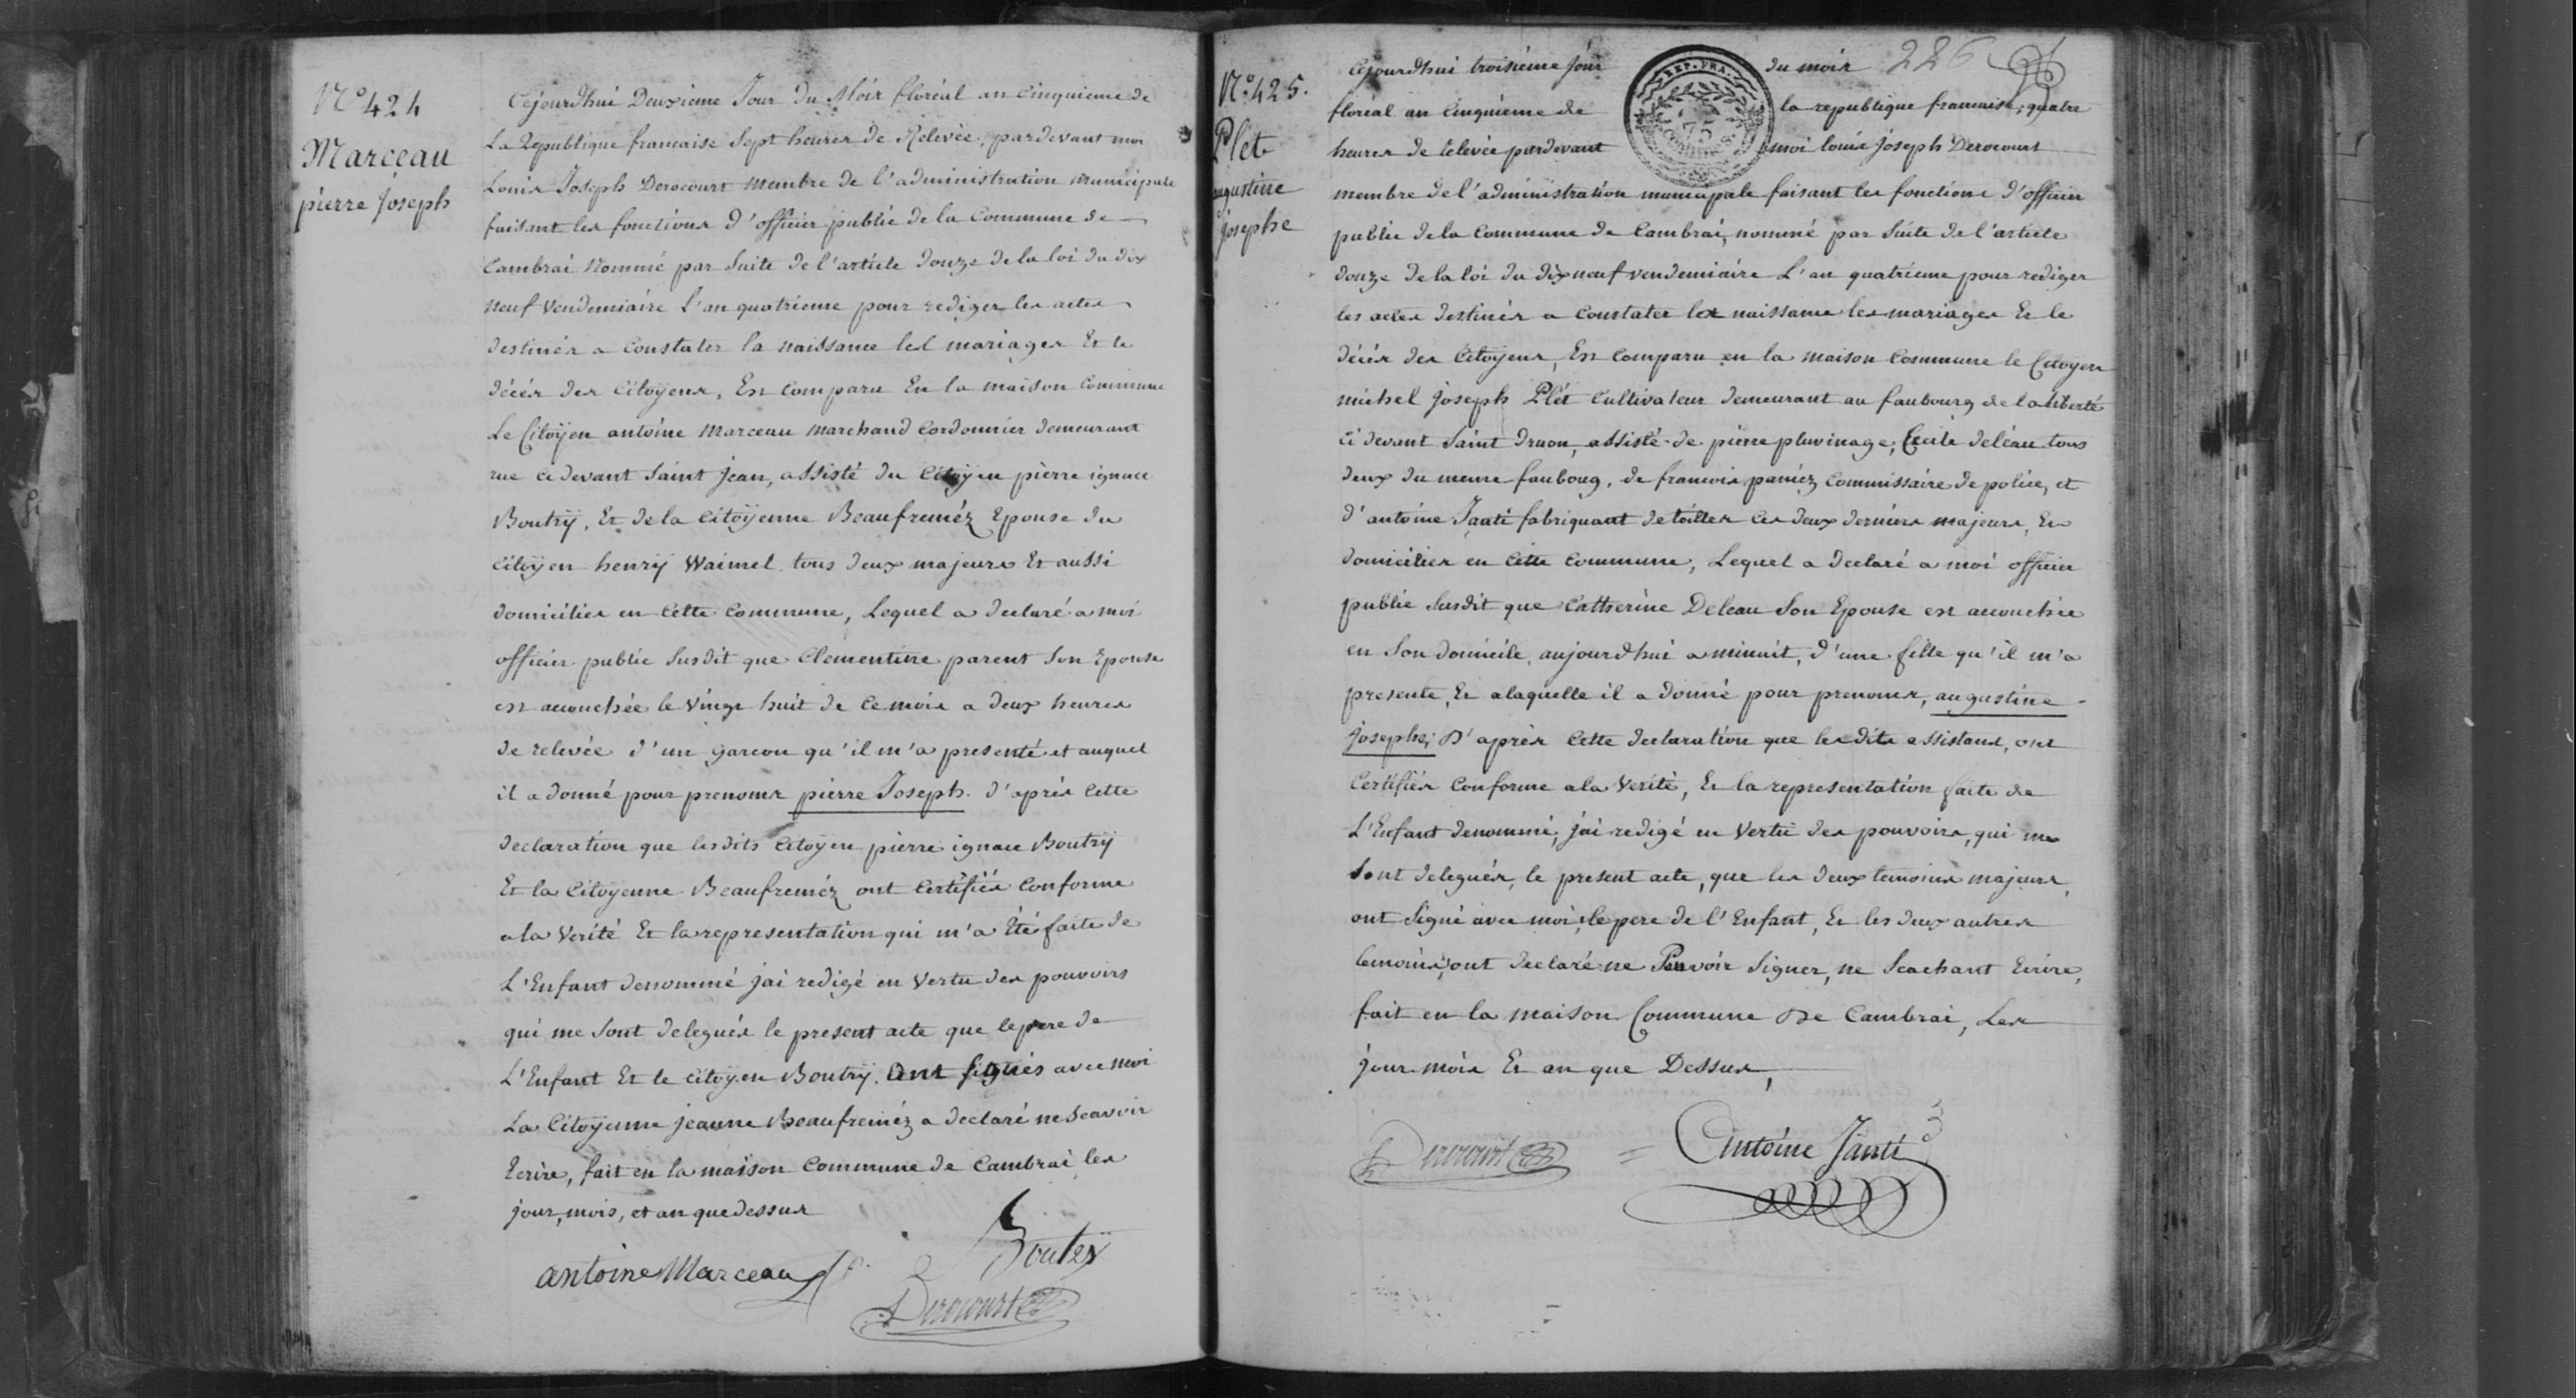 N.º 424
Marceau
pierre Joseph
Cejourdhui Deuxieme Jour Du Mois floréal an Cinquieme de
La Republique francaise Sept heures de Relevée, pardevant moi
Louis Joseph Derocourt membre de l'administration municipale
faisant les fonctions d'officier public de la Commune de
Cambrai Nommé par Suite de l'article douze de la loi du dix
neuf Vendemiaire L'an quatrieme pour rediger les actes
destinés a Constater la naissance les mariages Et le
décés des Citoÿens, Est Comparu En la maison Commune
Le Citoÿen antoine Marceau marchand Cordonnier demeurant
rue Ci devant Saint Jean, assisté du Citoÿen pierre ignace
Boutrÿ, Et de la Citoÿenne Beaufreméz Epouse du
Citoÿen henrÿ Waimel tous deux majeurs Et aussi
domiciliés en Cette Commune, Lequel a declaré a moi
officier public Susdit que Clementine parent Son Epouse
est accouchée le Vingt huit de Ce mois a deux heures
de relevée d'un garcon qu'il m'a presenté et auquel
il a donné pour prenoms pierre Joseph. d'aprés Cette
declaration que lesdits Citoÿen pierre ignace Boutrÿ
Et la Citoÿenne Beaufreméz ont Certifiés Conforme
a la Verité Et la representation qui m'a Eté faite de
L'Enfant denommé jai redigé en Vertu des pouvoirs
qui me Sont delegués le present acte que le pere de
L'Enfant Et le Citoÿen Boutrÿ. Ont Signés avec moi
La Citoÿenne jeanne Beaufreméz a declaré ne Scavoir
Ecrire, fait en la maison Commune de Cambrai les
jour, mois, et an que dessus
antoine Marceau
Boutrÿ
Derocourt
226
N.º 425.
Plét
augustine
josephe
Cejourdhui troisieme jour du mois
REP. FRA.
75
floréal an Cinquieme de la republique francaise, quatre
heures de relevée pardevant moi louis joseph Derocourt
membre de l'administration municipale faisant les fonctions d'officier
public de la Commune de Cambrai, nommé par Suite de l'article
douze de la loi du dix neuf vendemiaire L'an quatrieme pour rediger
les actes destinés a Constater les naissance les mariages Et le
décés des Citoyens, Est Comparu en la maison Commune le Citoyen
michel joseph Plét Cultivateur demeurant au faubourg de la liberté
ci devant Saint druon, assisté de pierre pluvinage, Cecile deléau tous
deux du meme faubourg, de francois paniéz Commissaire de police, et
d'antoine Janti fabriquant de toilles Ces deux derniers majeurs, Et
domiciliés en Cette Commune, Lequel a declaré a moi officier
public Susdit que Catherine Deleau Son Epouse est accouchée
en Son domicile, aujourdhui a minuit, d'une fille qu'il m'a
presenté, Et alaquelle il a donné pour prenoms, augustine
josephe; D'aprés Cette declaration que lesdits assistans, ont
Certifiés Conforme a la Verité, Et la representation faite de
L'Enfant denommé, jai redigé en Vertu des pouvoirs, qui me
Sont delegués, le present acte, que les deux temoins majeurs,
ont Signé avec moi, le pere de l'Enfant, Et les deux autres
temoins, ont declaré ne Pouvoir Signer, ne Scachant Ecrire,
fait en la maison Commune De Cambrai, Les
jour mois Et an que Dessus,
Derocourt
Antoine Janti